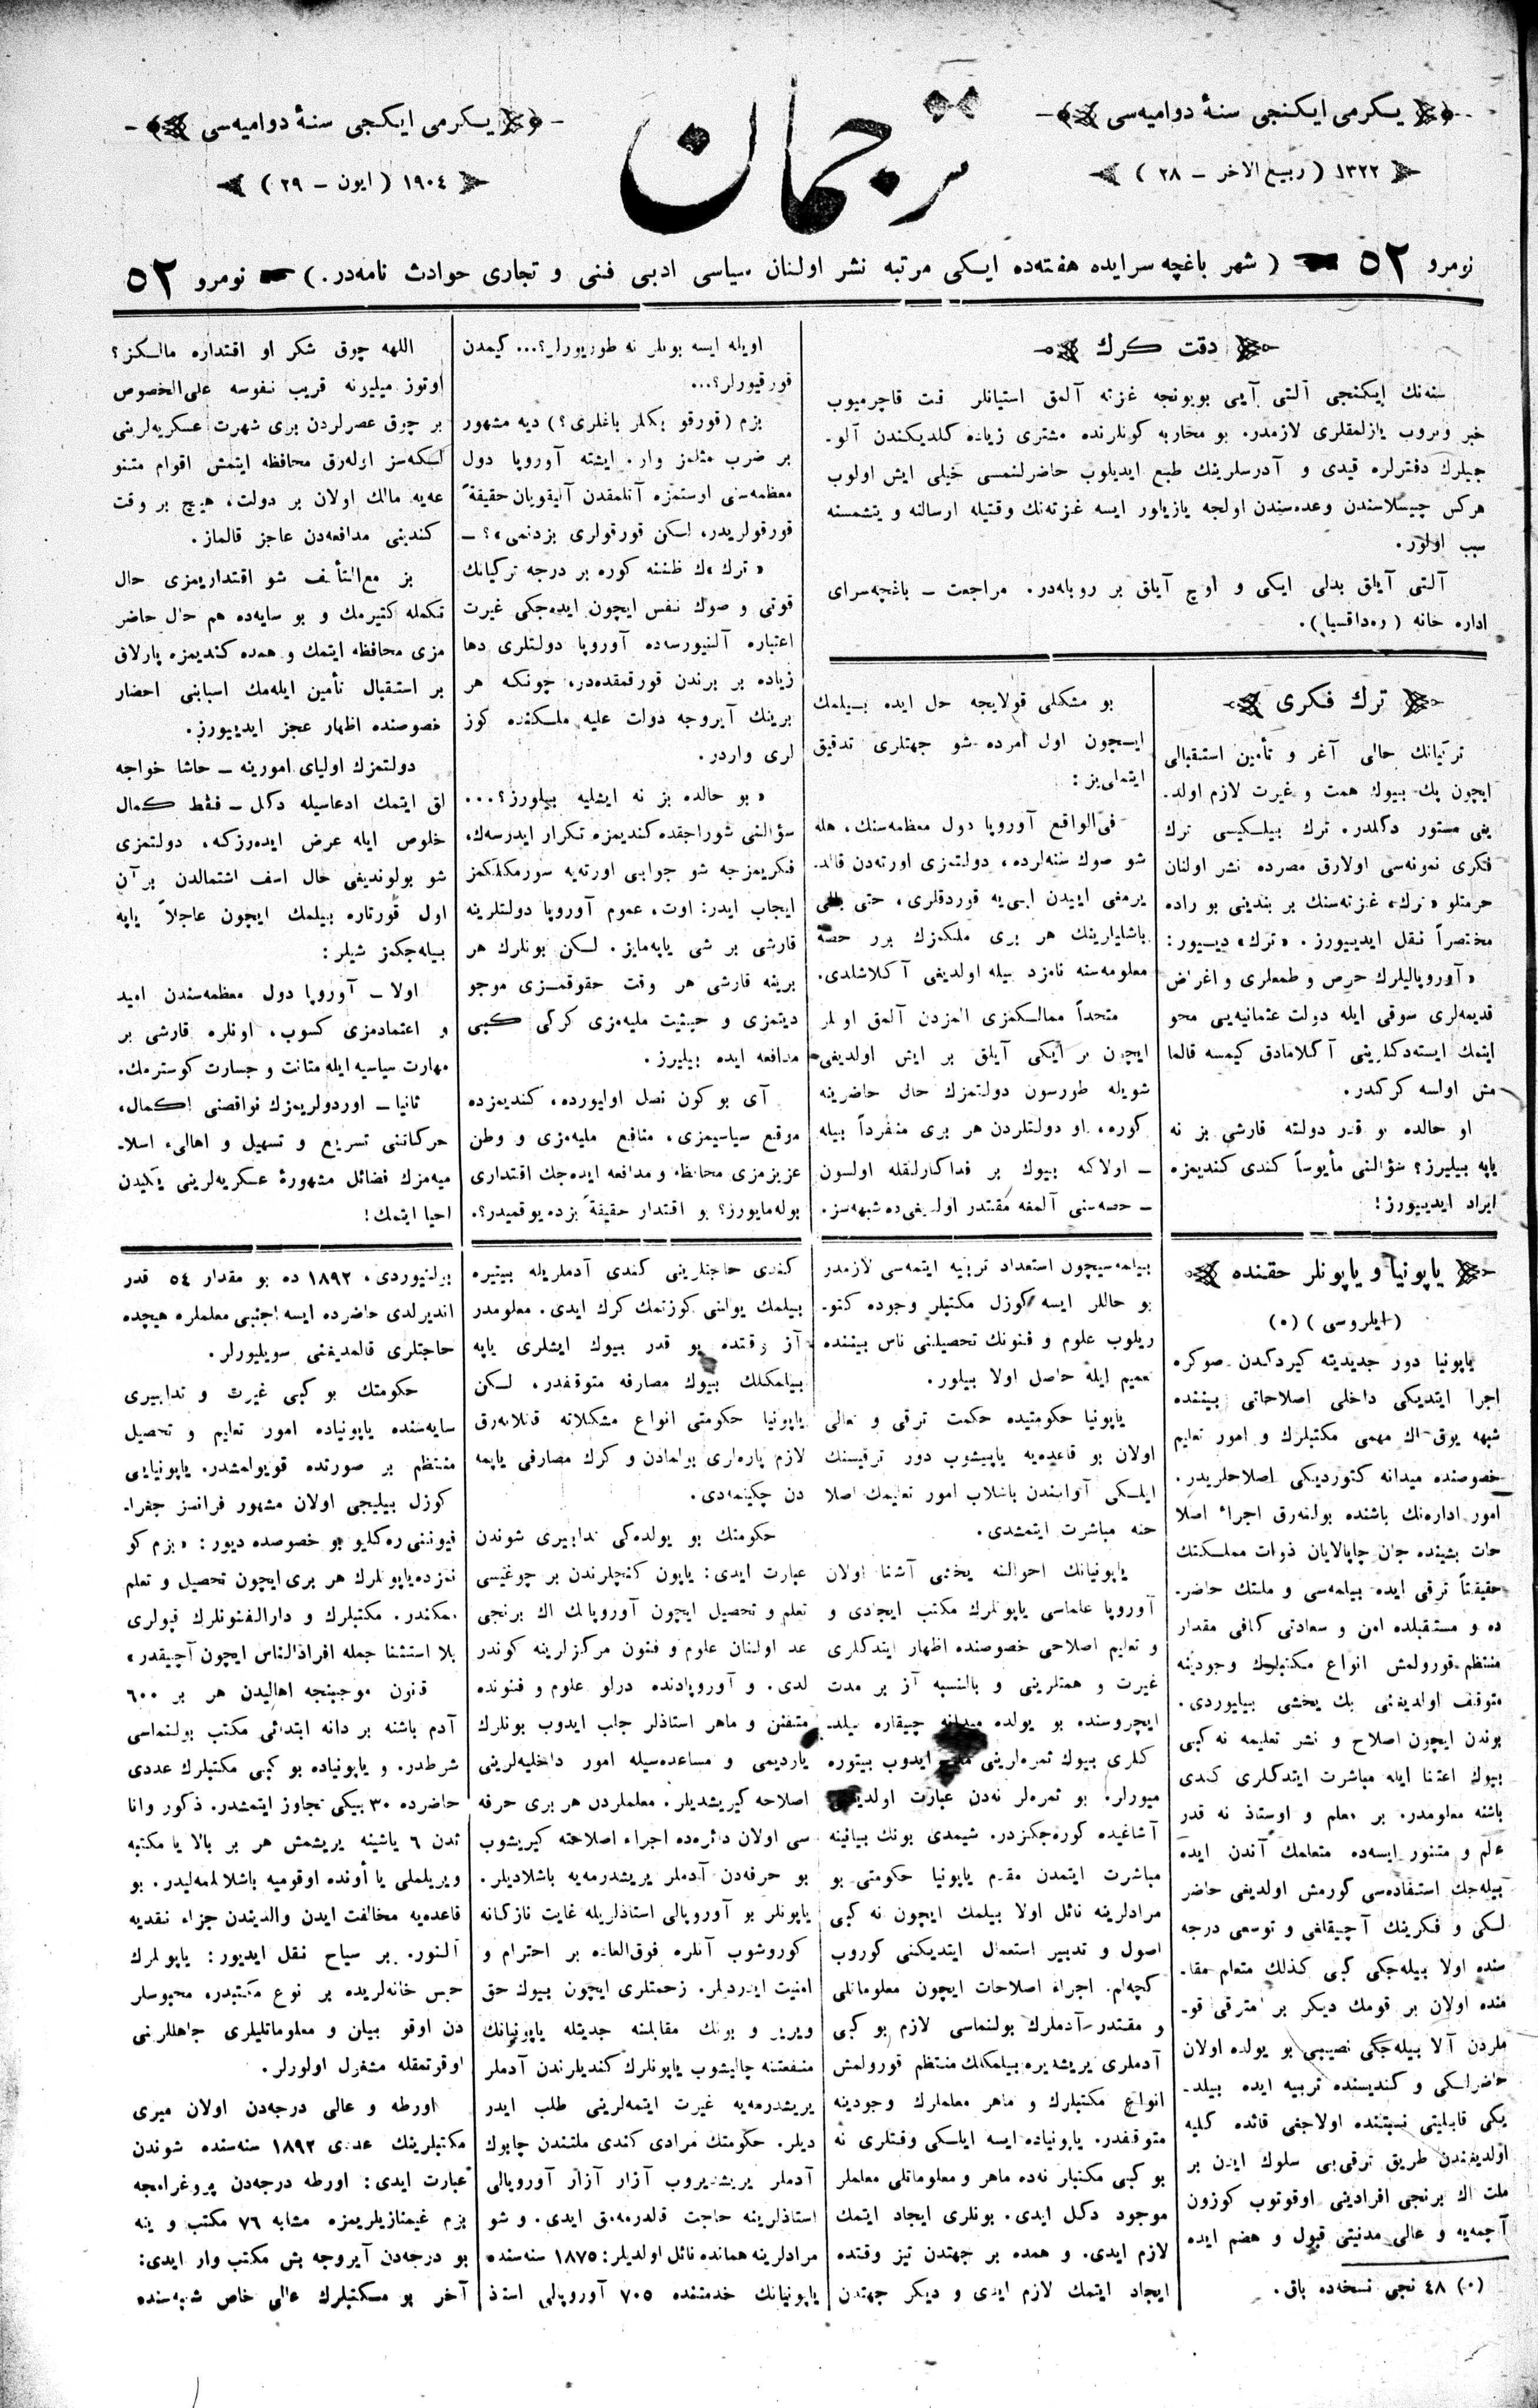 يكرمی ايكنجی سنۀ دواميه‌سی
١٣٢٢ ( ربيع الاخر ـ ٢٨ )
ترجمان
يكرمی ايكنجی سنۀ دواميه‌سی
١٩٠٤ ( ايون ـ ٢٩ )
نومرو ٥٢ ( شهر باغچه سرايده هفته‌ده ايكی مرتبه نشر اولنان سياسی ادبی فنی و تجاری حوادث نامه‌در. ) نومرو ٥٢
دقت كرك
سنه‌نك ايكنجی آلتی آيی بويونجه غزته آلمق استيانلر قت قاچرميوب
خبر ويروب يازلمقلری لازمدر. بو محاربه كونلرنده مشتری زياده كلديكندن آلو-
جيلرك دفترلره قيدی و آدرسلرينك طبع ايديلوب حاضرلنمسی خيلی ايش اولوب
هركس چيسلاسندن وعده‌سندن اولجه يازيلور ايسه غزته‌نك وقتيله ارسالنه و يتشمسنه
سبب اولور.
آلتی آيلق بدلی ايكی و اوچ آيلق بر روبله‌در. مراجعت ـ باغچه‌سرای
اداره خانه ( ره‌داقسيا ).
ترك فكری
تركيانك حالی آغر و تأمين استقبالی
ايچون پك بيوك همت و غيرت لازم اولد-
يغی مستور دكلدر. ترك بيلكيسی ترك
فكری نمونه‌سی اولارق مصرده نشر اولنان
حرمتلو «ترك» غزته‌سنك بر بندينی بو راده
مختصراً نقل ايدييورز. «ترك» ديييور:
« آوروپاليلرك حرص و طمعلری و اغراض
قديمه‌لری سوقی ايله دولت عثمانيه‌يی محو
ايتمك ايسته‌دكلرينی آكلامادق كيمسه قالما
مش اولسه كركدر.
او حالده بو قدر دولته قارشی بز نه
ياپه بيليرز؟ سؤالنی مأيوساً كندی كنديمزه
ايراد ايدييورز!
بو مشكلی قولايجه حل ايده بيلمك
ايچون اول امرده شو جهتلری تدقيق
ايتملی‌يز:
فی‌الواقع آوروپا دول معظمه‌سنك، هله
شو صوك سنه‌لرده، دولتمزی اورته‌دن قالد-
يرمغی اييدن ايی‌يه قوردقلری، حتی بللی
باشليلرينك هر بری ملكمزك برر حصۀ
معلومه‌سنه نامزد بيله اولديغی آكلاشلدی.
متحداً ممالكمزی المزدن آلمق اونلر
ايچون بر ايكی آيلق بر ايش اولديغی
شويله طورسون دولتمزك حال حاضرينه
كوره، او دولتلردن هر بری منفرداً بيله
ـ اولاكه بيوك بر فداكارلقله اولسون
ـ حصه‌سنی آلمغه مقتدر اولديغی‌ده شبهه‌سز.
اويله ايسه بونلر نه طورييورلر؟... كيمدن
قورقيورلر؟...
بزم (قورقو بكلر باغلری؟) ديه مشهور
بر ضرب مثلمز وار. ايشته آوروپا دول
معظمه‌سنی اوستمزه آتلمقدن آليقويان حقيقةً
قورقولريدر، لكن قورقولری بزدنمی،؟ ـ
« ترك »ك ظننه كوره بر درجه تركيانك
قوتی و صوك نفس ايچون ايده‌جكی غيرت
اعتباره آلنيورسه‌ده آوروپا دولتلری دها
زياده بر برندن قورقمقده‌در، چونكه هر
برينك آيروجه دولت عليه ملكنده كوز
لری واردر.
« بو حالده بز نه ايشليه بيلورز؟...
سؤالنی شوراجقده كنديمزه تكرار ايدرسه‌ك،
فكريمزجه شو جوابی اورته‌يه سورمكلكمز
ايجاب ايدر: اوت، عموم آوروپا دولتلرينه
قارشی بر شی ياپه‌مايز. لكن بونلرك هر
برينه قارشی هر وقت حقوقمزی موجو
ديتمزی و حيثيت مليه‌مزی كركی كبی
مدافعه ايده بيليرز.
آی بو كون نصل اوليورده، كنديمزده
موقع سياسيمزی، منافع مليه‌مزی و وطن
عزيزمزی محافظه و مدافعه ايده‌جك اقتداری
بوله‌مايورز؟ بو اقتدار حقيقةً بزده يوقميدر؟.
اللهه چوق شكر او اقتداره مالكز؟
اوتوز ميليونه قريب نفوسه علی‌الخصوص
بر چوق عصرلردن بری شهرت عسكريه‌لرينی
لكه‌سز اوله‌رق محافظه ايتمش اقوام متنو
عه‌يه مالك اولان بر دولت، هيچ بر وقت
كندينی مدافعه‌دن عاجز قالماز.
بز مع‌التأسف شو اقتداريمزی حال
تكمله كتيرمك و بو سايه‌ده هم حال حاضر
مزی محافظه ايتمك و همده كنديمزه پارلاق
بر استقبال تأمين ايله‌مك اسبابنی احضار
خصوصنده اظهار عجز ايدييورز.
دولتمزك اوليای امورينه ـ حاشا خواجه
لق ايتمك ادعاسيله دكل ـ فقط كمال
خلوص ايله عرض ايده‌رزكه، دولتمزی
شو بولونديغی حال اسف اشتمالدن بر آن
اول قورتاره بيلمك ايچون عاجلاً ياپه
بيله‌جكمز شيلر:
اولا ـ آوروپا دول معظمه‌سندن اميد
و اعتمادمزی كسوب، اونلره قارشی بر
مهارت سياسيه ايله متانت و جسارت كوسترمك.
ثانيا ـ اوردولريمزك نواقصنی اكمال،
حركاتنی تسريع و تسهيل و اهالیء اسلا-
ميه‌مزك فضائل مشهورۀ عسكريه‌لرينی يكيدن
احيا ايتمك!
ياپونيا و ياپونلر حقنده
(ايلروسی) (٠)
ياپونيا دور جديدينه كيردكدن صوكره
اجرا ايتديكی داخلی اصلاحاتی بيننده
شبهه يوق اك مهمی مكتبلرك و امور تعليم
خصوصنده ميدانه كتورديكی اصلاحلريدر.
امور اداره‌نك باشنده بولنه‌رق اجراء اصلا
حات بشينده جان چاپالايان ذوات مملكتك
حقيقتاً ترقی ايده بيلمه‌سی و ملتك حاضر-
ده و مستقبلده امن و سعادتی كافی مقدار
منتظم قورولمش انواع مكتبلرك وجودينه
متوقف اولديغنی بك يخشی بيليوردی.
بوندن ايچون اصلاح و نشر تعليمه نه كبی
بيوك اعتنا ايله مباشرت ايتدكلری كندی
باشنه معلومدر. بر معلم و اوستاذ نه قدر
عالم و متنور ايسه‌ده متعلمك آندن ايده
بيله‌جك استفاده‌سی كورمش اولديغی حاضر
لكی و فكرينك آچيقلغی و توسعی درجه
سنده اولا بيله‌جكی كبی كذلك متعلم مقا-
منده اولان بر قومك ديكر بر مترقی قو-
ملردن آلا بيله‌جكی نصيبی بو يولده اولان
حاضرلكی و كنديسنده تربيه ايده بيلد-
يكی قابليتی نسبتنده اولاجغی قائده كليه
اولديغندن طريق ترقی‌يی سلوك ايدن بر
ملت اك برنجی افرادينی اوقوتوب كوزون
آچمه‌يه و عالی مدنيتی قبول و هضم ايده
(٠) ٤٨ نجی نسخه‌ده باق.
بيلمه‌سيچون استعداد تربيه ايتمه‌سی لازمدر
بو حاللر ايسه كوزل مكتبلر وجوده كتو-
ريلوب علوم و فنونك تحصيلنی ناس بيننده
تعميم ايله حاصل اولا بيلور.
ياپونيا حكومتيده حكمت ترقی و تعالی
اولان بو قاعده‌يه ياپيشوب دور ترقيسنك
ايلكی آوانندن باشلاب امور تعليمك اصلا
حنه مباشرت ايتمشدی.
ياپونيانك احوالنه يخشی آشنا اولان
آوروپا علماسی ياپونلرك مكتب ايجادی و
و تعليم اصلاحی خصوصنده اظهار ايتدكلری
غيرت و همتلرينی و بالنسبه آز بر مدت
ايچروسنده بو يولده ميدانه چيقاره بيلد-
كلری بيوك ثمره‌لرينی ايدوب بيتوره
ميورلر. بو ثمره‌لر نه‌دن عبارت اولديغنی
آشاغيده كوره‌جكزدر. شيمدی بونك بياننه
مباشرت ايتمدن مقدم ياپونيا حكومتی بو
مرادلرينه نائل اولا بيلمك ايچون نه كبی
اصول و تدبير استعمال ايتديكنی كوروب
كچه‌لم. اجراء اصلاحات ايچون معلوماتلی
و مقتدر آدملرك بولنماسی لازم بو كبی
آدملری يريشديره بيلمكلك منتظم قورولمش
انواع مكتبلرك و ماهر معلملرك وجودينه
متوقفدر. ياپونياده ايسه ايلكی وقتلری نه
بو كبی مكتبلر نه‌ده ماهر و معلوماتلی معلملر
موجود دكل ايدی. بونلری ايجاد ايتمك
لازم ايدی. و همده بر جهتدن تيز وقتده
ايجاد ايتمك لازم ايدی و ديكر جهتدن
كندی حاجتلرينی كندی آدملريله بيتيره
بيلمك يوانی كوزتمك كرك ايدی. معلومدر
آز وقتده بو قدر بيوك ايشلری ياپه
بيلمكلك بيوك مصارفه متوقفدر، لكن
ياپونيا حكومتی انواع مشكلاته قتلانه‌رق
لازم پاره‌لری بولمادن و كرك مصارفی ياپمه
دن چكينمه‌دی.
حكومتك بو يولده‌كی تدابيری شوندن
عبارت ايدی: ياپون كنجلرندن بر چوغنيسی
تعلم و تحصيل ايچون آوروپانك اك برنجی
عد اولنان علوم و فنون مركزلرينه كوندر
لدی. و آوروپادنده درلو علوم و فنونده
متفنن و ماهر استاذلر جلب ايدوب بونلرك
يارديمی و مساعده‌سيله امور داخليه‌لرينی
اصلاحه كيريشديلر. معلملردن هر بری حرفه
سی اولان دائره‌ده اجراء اصلاحته كيريشوب
بو حرفه‌دن آدملر يريشدرمه‌يه باشلاديلر.
ياپونلر بو آوروپالی استاذلريله غايت نازكانه
كوروشوب آنلره فوق‌العاده بر احترام و
امنيت ايدرديلر. زحمتلری ايچون بيوك حق
ويرير و بونك مقابلنه جديتله ياپونيانك
منفعتنه چاليشوب ياپونلرك كنديلرندن آدملر
يريشدرمه‌يه غيرت ايتمه‌لرينی طلب ايدر
ديلر. حكومتك مرادی كندی ملتندن چابوك
آدملر يريشديروب آزار آزار آوروپالی
استاذلرينه حاجت قالدرمه‌مق ايدی. و شو
مرادلرينه همانده نائل اولديلر: ١٨٧٥ سنه‌سنده
ياپونيانك خدمتنده ٧٠٥ آوروپالی استاذ
بولنيوردی، ١٨٩٢ ده بو مقدار ٥٤ قدر
انديرلدی حاضرده ايسه اجنبی معلملره هيچده
حاجتلری قالمديغنی سويليورلر.
حكومتك بو كبی غيرت و تدابيری
سايه‌سنده ياپونياده امور تعليم و تحصيل
منتظم بر صورتده قويولمشدر. ياپونيايی
كوزل بيليجی اولان مشهور فرانسز جغرا-
فيوننی ره‌كليو بو خصوصده ديور: « بزم كو
نمزده ياپونلرك هر بری ايچون تحصيل و تعلم
ممكندر. مكتبلرك و دارالفنونلرك قپولری
بلا استثنا جمله افرادالناس ايچون آچيقدر »
قانون موجبنجه اهاليدن هر بر ٦٠٠
آدم باشنه بر دانه ابتدائی مكتب بولنماسی
شرطدر. و ياپونياده بو كبی مكتبلرك عددی
حاضرده ٣٠ بيكی تجاوز ايتمشدر. ذكور وانا
ثدن ٦ ياشينه يريشمش هر بر بالا يا مكتبه
ويريلملی يا أونده اوقوميه باشلانمه‌ليدر. بو
قاعده‌يه مخالفت ايدن والديندن جزاء نقديه
آلنور. بر سياح نقل ايديور: ياپونلرك
حبس خانه‌لريده بر نوع مكتبدر، محبوسلر
دن اوقو بيلن و معلوماتليلری جاهللرنی
اوقوتمقله مشغول اولورلر.
اورطه و عالی درجه‌دن اولان ميری
مكتبلرينك عددی ١٨٩٢ سنه‌سنده شوندن
عبارت ايدی: اورطه درجه‌دن پروغرامجه
بزم غيمنازيلريمزه مشابه ٧٦ مكتب و ينه
بو درجه‌دن آيروجه بش مكتب وار ايدی:
آخر بو مكتبلرك عالی خاص شعبه‌سنده